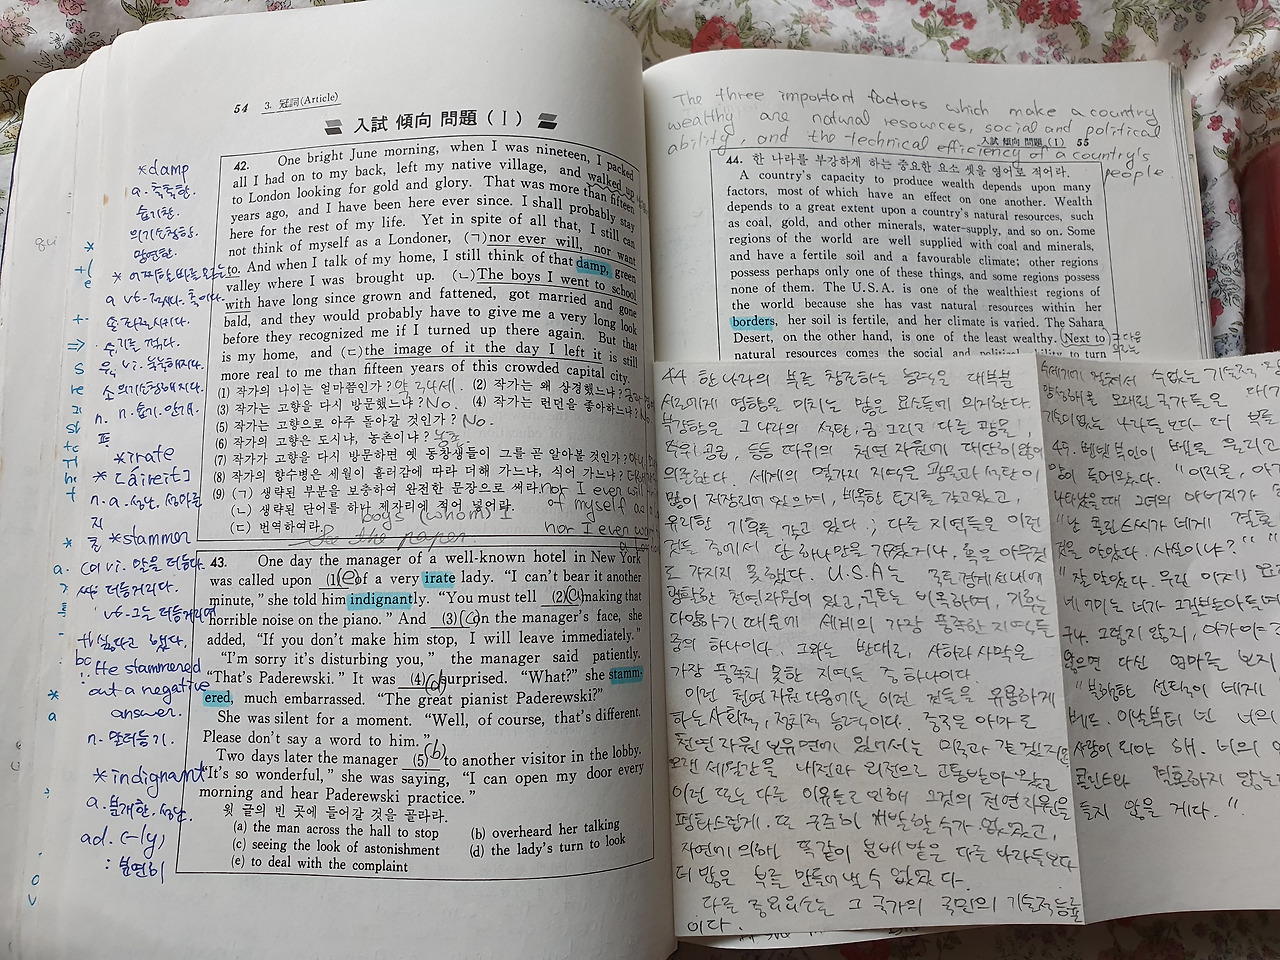 54 3. 冠詞(Article)
入試 傾向 問題 (Ⅰ)
42. One bright June morning, when I was nineteen, I packed
all I had on to my back, left my native village, and walked up
to London looking for gold and glory. That was more than fifteen
years ago, and I have been here ever since. I shall probably stay
here for the rest of my life. Yet in spite of all that, I still can
not think of myself as a Londoner, (ㄱ) nor ever will, nor want
to. And when I talk of my home, I still think of that damp, green
valley where I was brought up. (ㄴ) The boys I went to school
with have long since grown and fattened, got married and gone
bald, and they would probably have to give me a very long look
before they recognized me if I turned up there again. But that
is my home, and (ㄷ) the image of it the day I left it is still
more real to me than fifteen years of this crowded capital city.
(1) 작가의 나이는 얼마쯤인가? 약 34세. (2) 작가는 왜 상경했느냐?
(3) 작가는 고향을 다시 방문했느냐? No. (4) 작가는 런던을 좋아하느냐?
(5) 작가는 고향으로 아주 돌아갈 것인가? No.
(6) 작가의 고향은 도시냐, 농촌이냐? 농촌
(7) 작가가 고향을 다시 방문하면 옛 동창생들이 그를 곧 알아볼 것인가?
(8) 작가의 향수병은 세월이 흘러감에 따라 더해 가느냐, 식어 가느냐?
(9) (ㄱ) 생략된 부분을 보충하여 완전한 문장으로 써라. nor I ever will
(ㄴ) 생략된 단어를 하나 제자리에 적어 넣어라. of myself as
boys (whom) I
(ㄷ) 번역하여라. nor I ever
the paper.
43. One day the manager of a well-known hotel in New York
was called upon (1)(e) of a very irate lady. “I can't bear it another
minute,” she told him indignantly. “You must tell (2)(a) making that
horrible noise on the piano.” And (3)(c) on the manager's face, she
added, “If you don't make him stop, I will leave immediately.”
“I'm sorry it's disturbing you,” the manager said patiently.
“That's Paderewski.” It was (4)(d) surprised. “What?” she stamm-
ered, much embarrassed. “The great pianist Paderewski?”
She was silent for a moment. “Well, of course, that's different.
Please don't say a word to him.”
Two days later the manager (5)(b) to another visitor in the lobby.
“It's so wonderful,” she was saying, “I can open my door every
morning and hear Paderewski practice.”
윗 글의 빈 곳에 들어갈 것을 골라라.
(a) the man across the hall to stop (b) overheard her talking
(c) seeing the look of astonishment (d) the lady's turn to look
(e) to deal with the complaint
*damp
a. 축축한.
습기찬.
의기소침한.
a vt.
n. 습기. 안개.
*irate
*[áireit]
*stammer
vi. 말을 더듬다.
He stammered
out a negative
answer.
n. 말더듬기.
*indignant
a. 분개한. 성난
ad. (-ly)
: 분연히
The three important factors which make a country
wealthy are natural resources, social and political
ability, and the technical efficiency of a country's
people.
入試 傾向 問題 (Ⅰ) 55
44. 한 나라를 부강하게 하는 중요한 요소 셋을 영어로 적어라.
A country's capacity to produce wealth depends upon many
factors, most of which have an effect on one another. Wealth
depends to a great extent upon a country's natural resources, such
as coal, gold, and other minerals, water-supply, and so on. Some
regions of the world are well supplied with coal and minerals,
and have a fertile soil and a favourable climate; other regions
possess perhaps only one of these things, and some regions possess
none of them. The U.S.A. is one of the wealthiest regions of
the world because she has vast natural resources within her
borders, her soil is fertile, and her climate is varied. The Sahara
Desert, on the other hand, is one of the least wealthy. Next to
natural resources comes the social and political ability to turn
44. 한 나라의 부를 창조하는 능력은 대부분
서로에게 영향을 미치는 많은 요소들에 의지한다.
부강함은 그 나라의 석탄, 금 그리고 다른 광물,
수위 공급, 등등 따위의 천연 자원에 대단히 많이
의존한다. 세계의 몇가지 지역은 광물과 석탄이
많이 저장되어 있으며, 비옥한 토지를 갖고있고,
유리한 기후를 갖고 있다; 다른 지역들은 이런
것들 중에서 단 하나만을 가졌거나, 혹은 아무것
도 가지지 못했다. U.S.A는 국토경계선내에
광활한 천연자원이 있고, 국토는 비옥하며, 기후는
다양하기 때문에 세계의 가장 풍족한 지역들
중의 하나이다. 그와는 반대로, 사하라 사막은
가장 풍족치 못한 지역들 중 하나이다.
이런 천연 자원 다음에는 이런 것들을 유용하게
하는 사회적, 정치적 능력이다. 중국은 아마도
천연 자원 보유면에 있어서는 미국과 같겠지만
오랜 세월간을 내전과 외전으로 고통받아 왔고
이런 또는 다른 이유들로 인해 그것의 천연자원을
평화스럽게. 또 꾸준히 개발할 수가 없었고,
자연에 의해 똑같이 분배 받은 다른 나라들보다
더 많은 부를 만들어 낼 수 없었다.
다른 중요요소는 그 국가의 국민의 기술적능률
이다.
수세기에 걸쳐서 수없는 기술적
기술이없는 나라들보다 더 부를